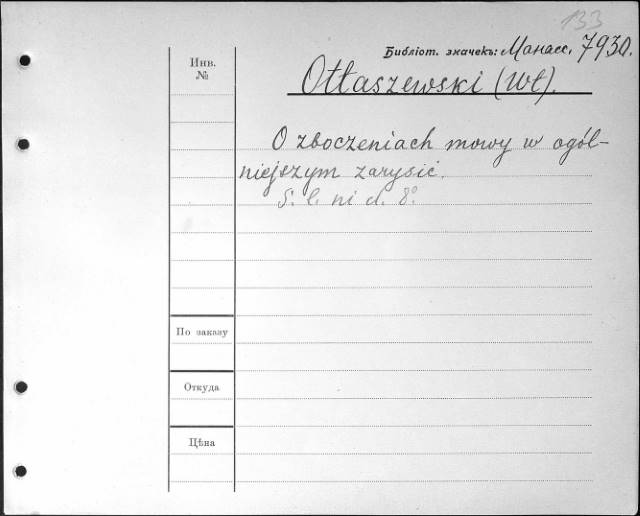 133
Библіот. значекъ: Манасс. 7930.
Инв. №
Ołtaszewski (Wł).
O zboczeniach mowy w ogól-
niejszym zarysie.
S. l. ni d. 8°
По заказу
Откуда
Цѣна